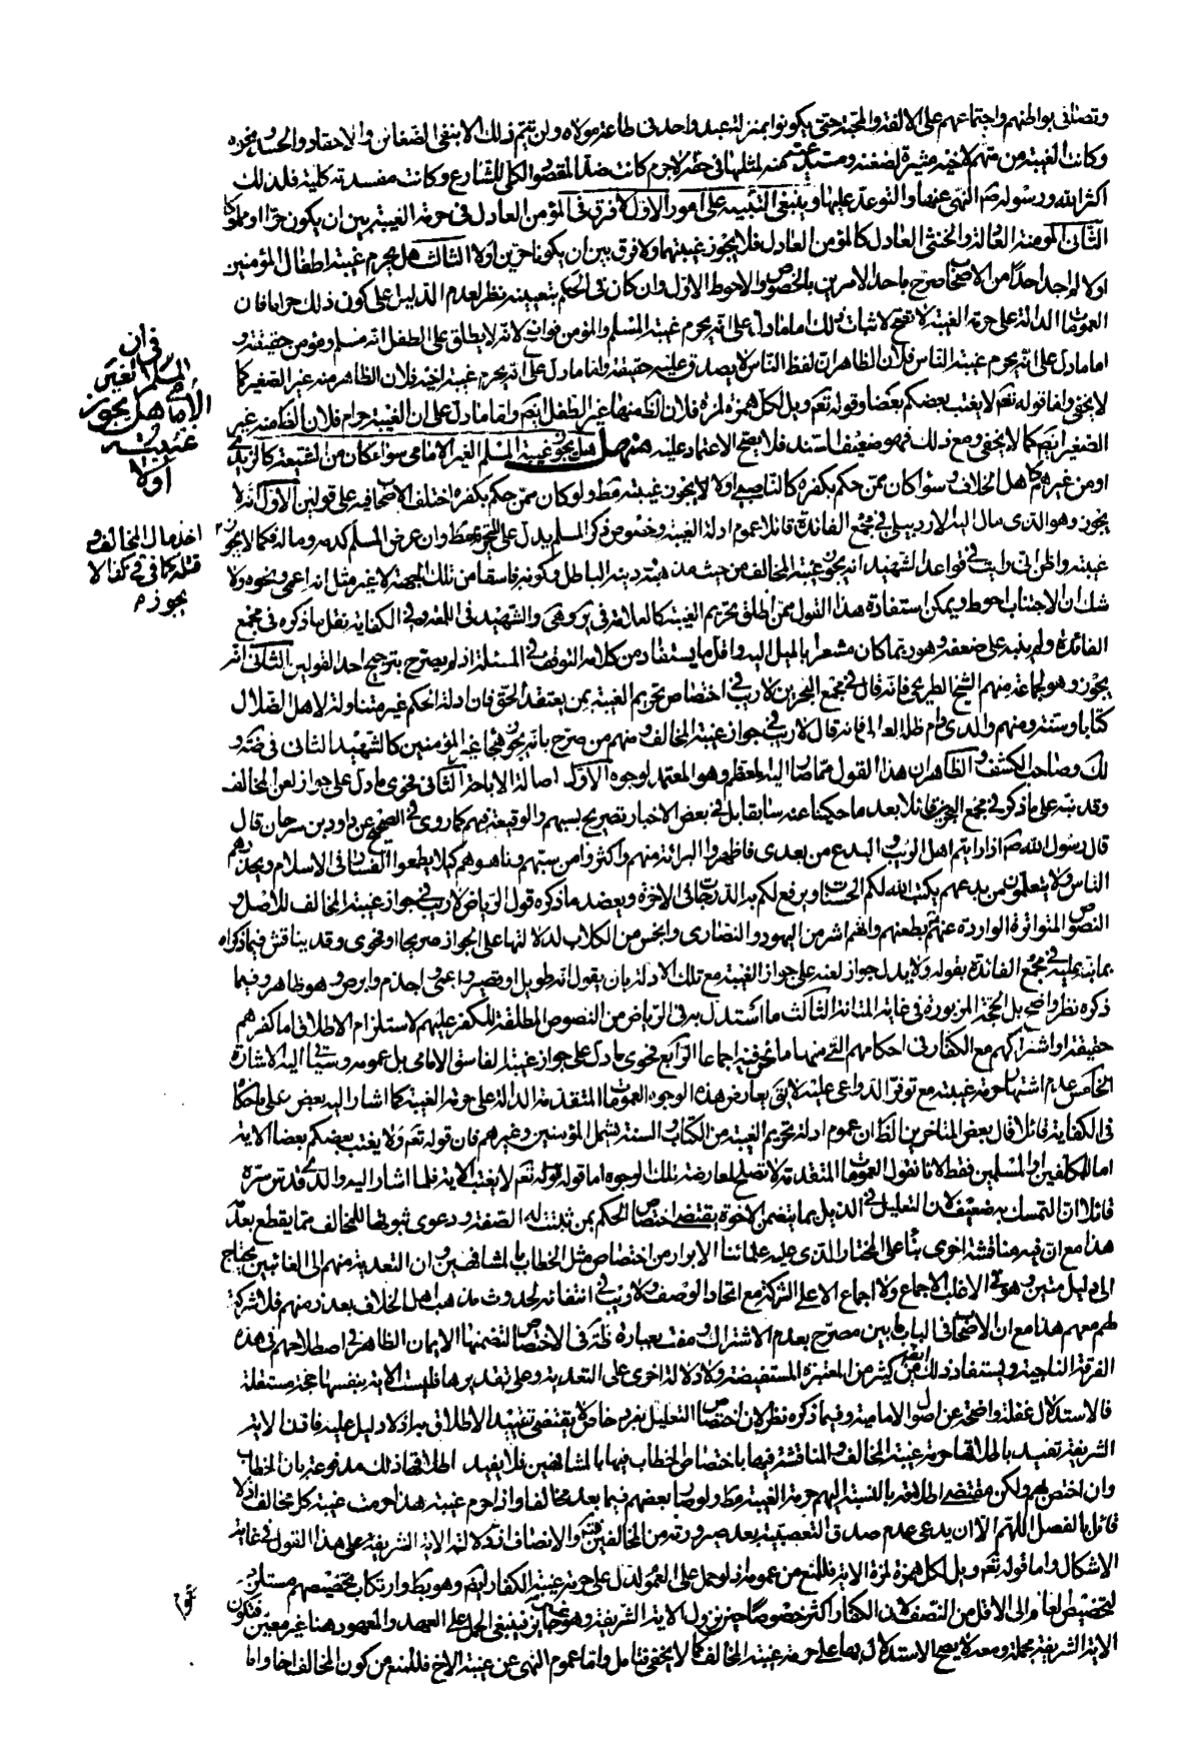 وتصافي بواطنهم واجتماعهم على الالفة والمحبة حتى يكونوا بمنزلة عبد واحد في طاعة مولاه ولن يتم ذلك الا بنفي الضغائن والاحقاد والحسد ونحوه
وكانت الغيبة من منهم لاخيه مثيرة لضغنه ومستدعية منه لمثلها في حقه لاجرم كانت ضد المقصود الكلي للشارع وكانت مفسدة كلية فلذلك
اكثر الله ورسوله ص النهي عنها والتوعد عليها وينبغي التنبيه على امور الاول لا فرق في المؤمن العادل في حرمة الغيبة بين ان يكون حرا او مملوكا
الثاني المؤمنة العادلة والخنثى العادل كالمؤمن العادل فلا يجوز غيبتهما ولا فرق بين ان يكونا حرين اولا الثالث هل يحرم غيبة اطفال المؤمنين
اولا لم اجد احدا من الاصحاب صرح باحد الامرين بالخصوص والاحوط الاول وان كان في الحكم بتعيينه نظر لعدم الدليل على كون ذلك حراما فان
العمومات الدالة على حرمة الغيبة لا تصلح لاثبات ذلك اما ما دل على انه يحرم غيبة المسلم والمؤمن فواضح لانه لا يطلق على الطفل انه مسلم ومؤمن حقيقة و
اما ما دل على انه يحرم غيبة الناس فلان الظاهر ان لفظ الناس لا يصدق عليه حقيقة واما ما دل على انه يحرم غيبة اخيه فلان الظاهر منه غير الصغير كما
لا يخفى واما قوله تعم لا يغتب بعضكم بعضا وقوله تعم ويل لكل همزة لمزة فلان الظ منها غير الطفل ايضم واما ما دل على ان الغيبة حرام فلان الظ منه غير
الصغير ايضم كما لا يخفى ومع ذلك فهو ضعيف السند فلا يصح الاعتماد عليه منهل هل يجوز غيبة المسلم الغير الامامي سواء كان من الشيعة كالزيدي
او من غيرهم كاهل الخلاف وسواء كان ممن حكم بكفره كالناصبي اولا لا يجوز غيبته مط ولو كان ممن حكم بكفره اختلف الاصحاب فيه على قولين الاول انه لا
يجوز وهو الذي مال اليه الاردبيلي في مجمع الفائدة قائلا عموم ادلة الغيبة وخصوص ذكر المسلم يدل على التحريم مط وان عرض المسلم كدمه وماله فكما لا يجوز
غيبته واظن اني رايت في قواعد الشهيد انه يجوز غيبة المخالف من حيث مذهبه ودينه الباطل وكونه فاسقا من تلك الجهة لا غير مثل انه اعمى ونحوه ولا
شك ان الاجتناب احوط ويمكن استفادة هذا القول ممن اطلق تحريم الغيبة كالعلامة في ير وهى والشهيد في اللمعة وفي الكفاية نقل ما ذكره في مجمع
الفائدة ولم ينبه على ضعفه وهو ربما كان مشعرا بالميل اليه واقل ما يستفاد من كلامه التوقف في المسئلة اذ لم يصرح بترجيح احد القولين الثاني انه
يجوز وهو لجماعة منهم الشيخ الطريحي فانه قال في مجمع البحرين لا ريب في اختصاص تحريم الغيبة بمن يعتقد الحق فان ادلة الحكم غير متناولة لاهل الضلال
كتابا وسنة ومنهم والدي دام ظله العالي فانه قال لا ريب في جواز غيبة المخالف ومنهم من صرح بانه يجوز هجاء غير المؤمنين كالشهيد الثاني في ضه و
لك وصاحب الكشف والظاهر ان هذا القول مما صار اليه المعظم وهو المعتمد لوجوه الاول اصالة الاباحة الثاني فحوى ما دل على جواز لعن المخالف
وقد نبه على ما ذكر في مجمع البحرين قائلا بعد ما حكينا عنه سابقا بل في بعض الاخبار تصريح بسبهم والوقيعة فيهم كما روى في الصحيح عن داود بن سرحان قال
قال رسول الله ص اذا رايتم اهل الريب والبدع من بعدي فاظهروا البرائة منهم واكثروا من سبهم وباهتوهم كيلا يطعموا الفساد في الاسلام ويحذرهم
الناس ولا يتعلمون من بدعهم يكتب الله لكم الحسنات ويرفع لكم به الدرجات في الاخرة ويعضد ما ذكره قول الرياض لا ريب في جواز غيبة المخالف للاصل و
النصوص المتواترة الواردة عنهم بطعنهم وانهم اشر من اليهود والنصارى وانجس من الكلاب لدلالتها على الجواز صريحا او فحوى وقد يناقش فيما ذكراه
بما نبه عليه في مجمع الفائدة بقوله ولا يدل جواز لعنه على جواز الغيبة مع تلك الادلة بان يقول انه طويل او قصير واعمى واجذم وابرص وهو ظاهر وفيما
ذكره نظر واضح بل الحجة المزبورة في غاية المتانة الثالث ما استدل به في الرياض من النصوص المطلقة للكفر عليهم لاستلزام الاطلاق اما كفرهم
حقيقة او اشتراكهم مع الكفار في احكامهم التي منها ما نحن فيه اجماعا الرابع فحوى ما دل على جواز غيبة الفاسق الامامي بل عمومه وسياتي اليه الاشارة
الخامس عدم اشتهار حرمة غيبته مع توفر الدواعي عليه لا يق يعارض هذه الوجوه العمومات المتقدمة الدالة على حرمة الغيبة كما اشار اليه بعض على ما حكاه
في الكفاية قائلا قال بعض المتاخرين الظ ان عموم ادلة تحريم الغيبة من الكتاب والسنة يشمل المؤمنين وغيرهم فان قوله تعم ولا يغتب بعضكم بعضا الاية
اما للمكلفين او المسلمين فقط لانا نقول العمومات المتقدمة لا تصلح لمعارضة تلك الوجوه اما قوله تعم لا يغتب الاية فلما اشار اليه والدي قدس سره
قائلا ان التمسك به ضعيف لان التعليل في الذيل بما يتضمن الاخوة يقتضى اختصاص الحكم بمن ثبت له الصفة ودعوى ثبوتها للمخالف مما يقطع بعدمه
هذا مع ان فيه مناقشة اخرى بناء على المختار الذي عليه علمائنا الابرار من اختصاص مثل الخطاب بالمشافهين وان التعدية منهم الى الغائبين يحتاج
الى دليل متين وهو في الاغلب الاجماع ولا اجماع الا على الشركة مع اتحاد الوصف ولا ريب في انتفائه لحدوث مذهب اهل الخلاف بعد زمنهم فلا شركة
لهم معهم هذا مع ان الاصحاب في الباب ما بين مصرح بعدم الاشتراك ومفت بعبارة ظاهرة في الاختصاص لتضمنها الايمان الظاهر في اصطلاحهم في هذه
الفرقة الناجية ويستفاد ذلك ايضم من كثير من المعتبرة المستفيضة ولا دلالة اخرى على التعدية وعلى تقديرها فليست الاية بنفسها حجة مستقلة
فالاستدلال غفلة واضحة عن اصول الامامية وفيما ذكره نظر لان اختصاص التعليل بفرد خاص لا يقتضى تقييد الاطلاق به اذ لا دليل عليه فاذن الاية
الشريفة تفيد باطلاقها حرمة غيبة المخالف والمناقشة فيها باختصاص الخطاب فيها بالمشافهين فلا يفيد اطلاقها ذلك مدفوعة بان الخطاب
وان اختص بهم ولكن مقتضى اطلاقه بالنسبة اليهم حرمة الغيبة مط ولو صار بعضهم فيما بعد مخالفا واذا حرم غيبة هذا حرمت غيبة كل مخالف اذ لا
قائل بالفصل اللهم الا ان يدعى عدم صدق التعصبية بعد صيرورته من المخالفين والانصاف ان دلالة الاية الشريفة على هذا القول في غاية
الاشكال واما قوله تعم ويل لكل همزة لمزة الاية فللمنع من عمومه اذ لو حمل على العموم لدل على حرمة غيبة الكفار ايضم وهو بط وارتكاب تخصيصهم مستلزم
لتخصيص العام الى الاقل من النصف لان الكفار اكثر خصوصا حين نزول الاية الشريفة وهو غير جايز فينبغي الحمل على العهد والمعهود هنا غير معين فتكون
الاية الشريفة مجملة ومعه لا يصح الاستدلال بها على حرمة غيبة المخالف كما لا يخفى فتامل واما عموم النهي عن غيبة الاخ فللمنع من كون المخالف اخا واما
في ان
المسلم الغير
الامامي هل يجوز
غيبته
اولا
اخذ مال المخالف و
قتله كما في كذا لا
يجوز م